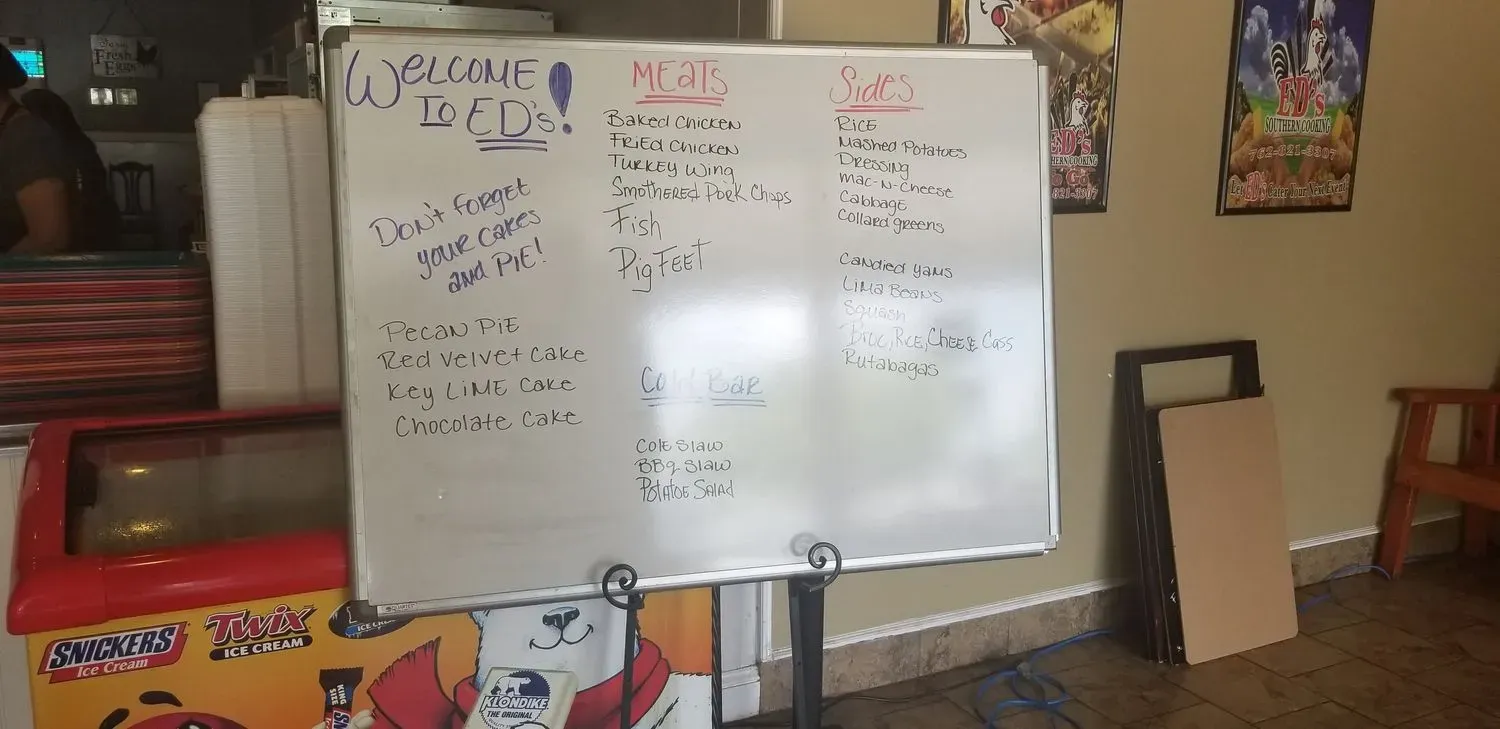 Fresh
Eggs
WELCOME
TO ED's!
DON'T FORGET
YOUR CAKES
AND PIE!
PECAN PIE
Red Velvet Cake
Key LIME Cake
Chocolate Cake
MEATS
BAKED CHICKEN
FRIED CHICKEN
TURKEY WING
SMOTHERED PORK CHOPS
Fish
Pig FEET
Cold Bar
COLE SLAW
BBQ SLAW
POTATOE SALAD
Sides
RICE
MASHED POTATOES
DRESSING
MAC-N-CHEESE
CABBAGE
COLLARD GREENS
CANDIED YAMS
LIMA BEANS
SQUASH
BROC, RICE, CHEESE CASS
RUTABAGAS
QUARTET
ED's
SOUTHERN COOKING
762-821-3307
Let ED's Cater Your Next Event
ED's
HERN COOKING
821-3307
SNICKERS
Ice Cream
TWIX
ICE CREAM
KING
SIZE
KLONDIKE
THE ORIGINAL